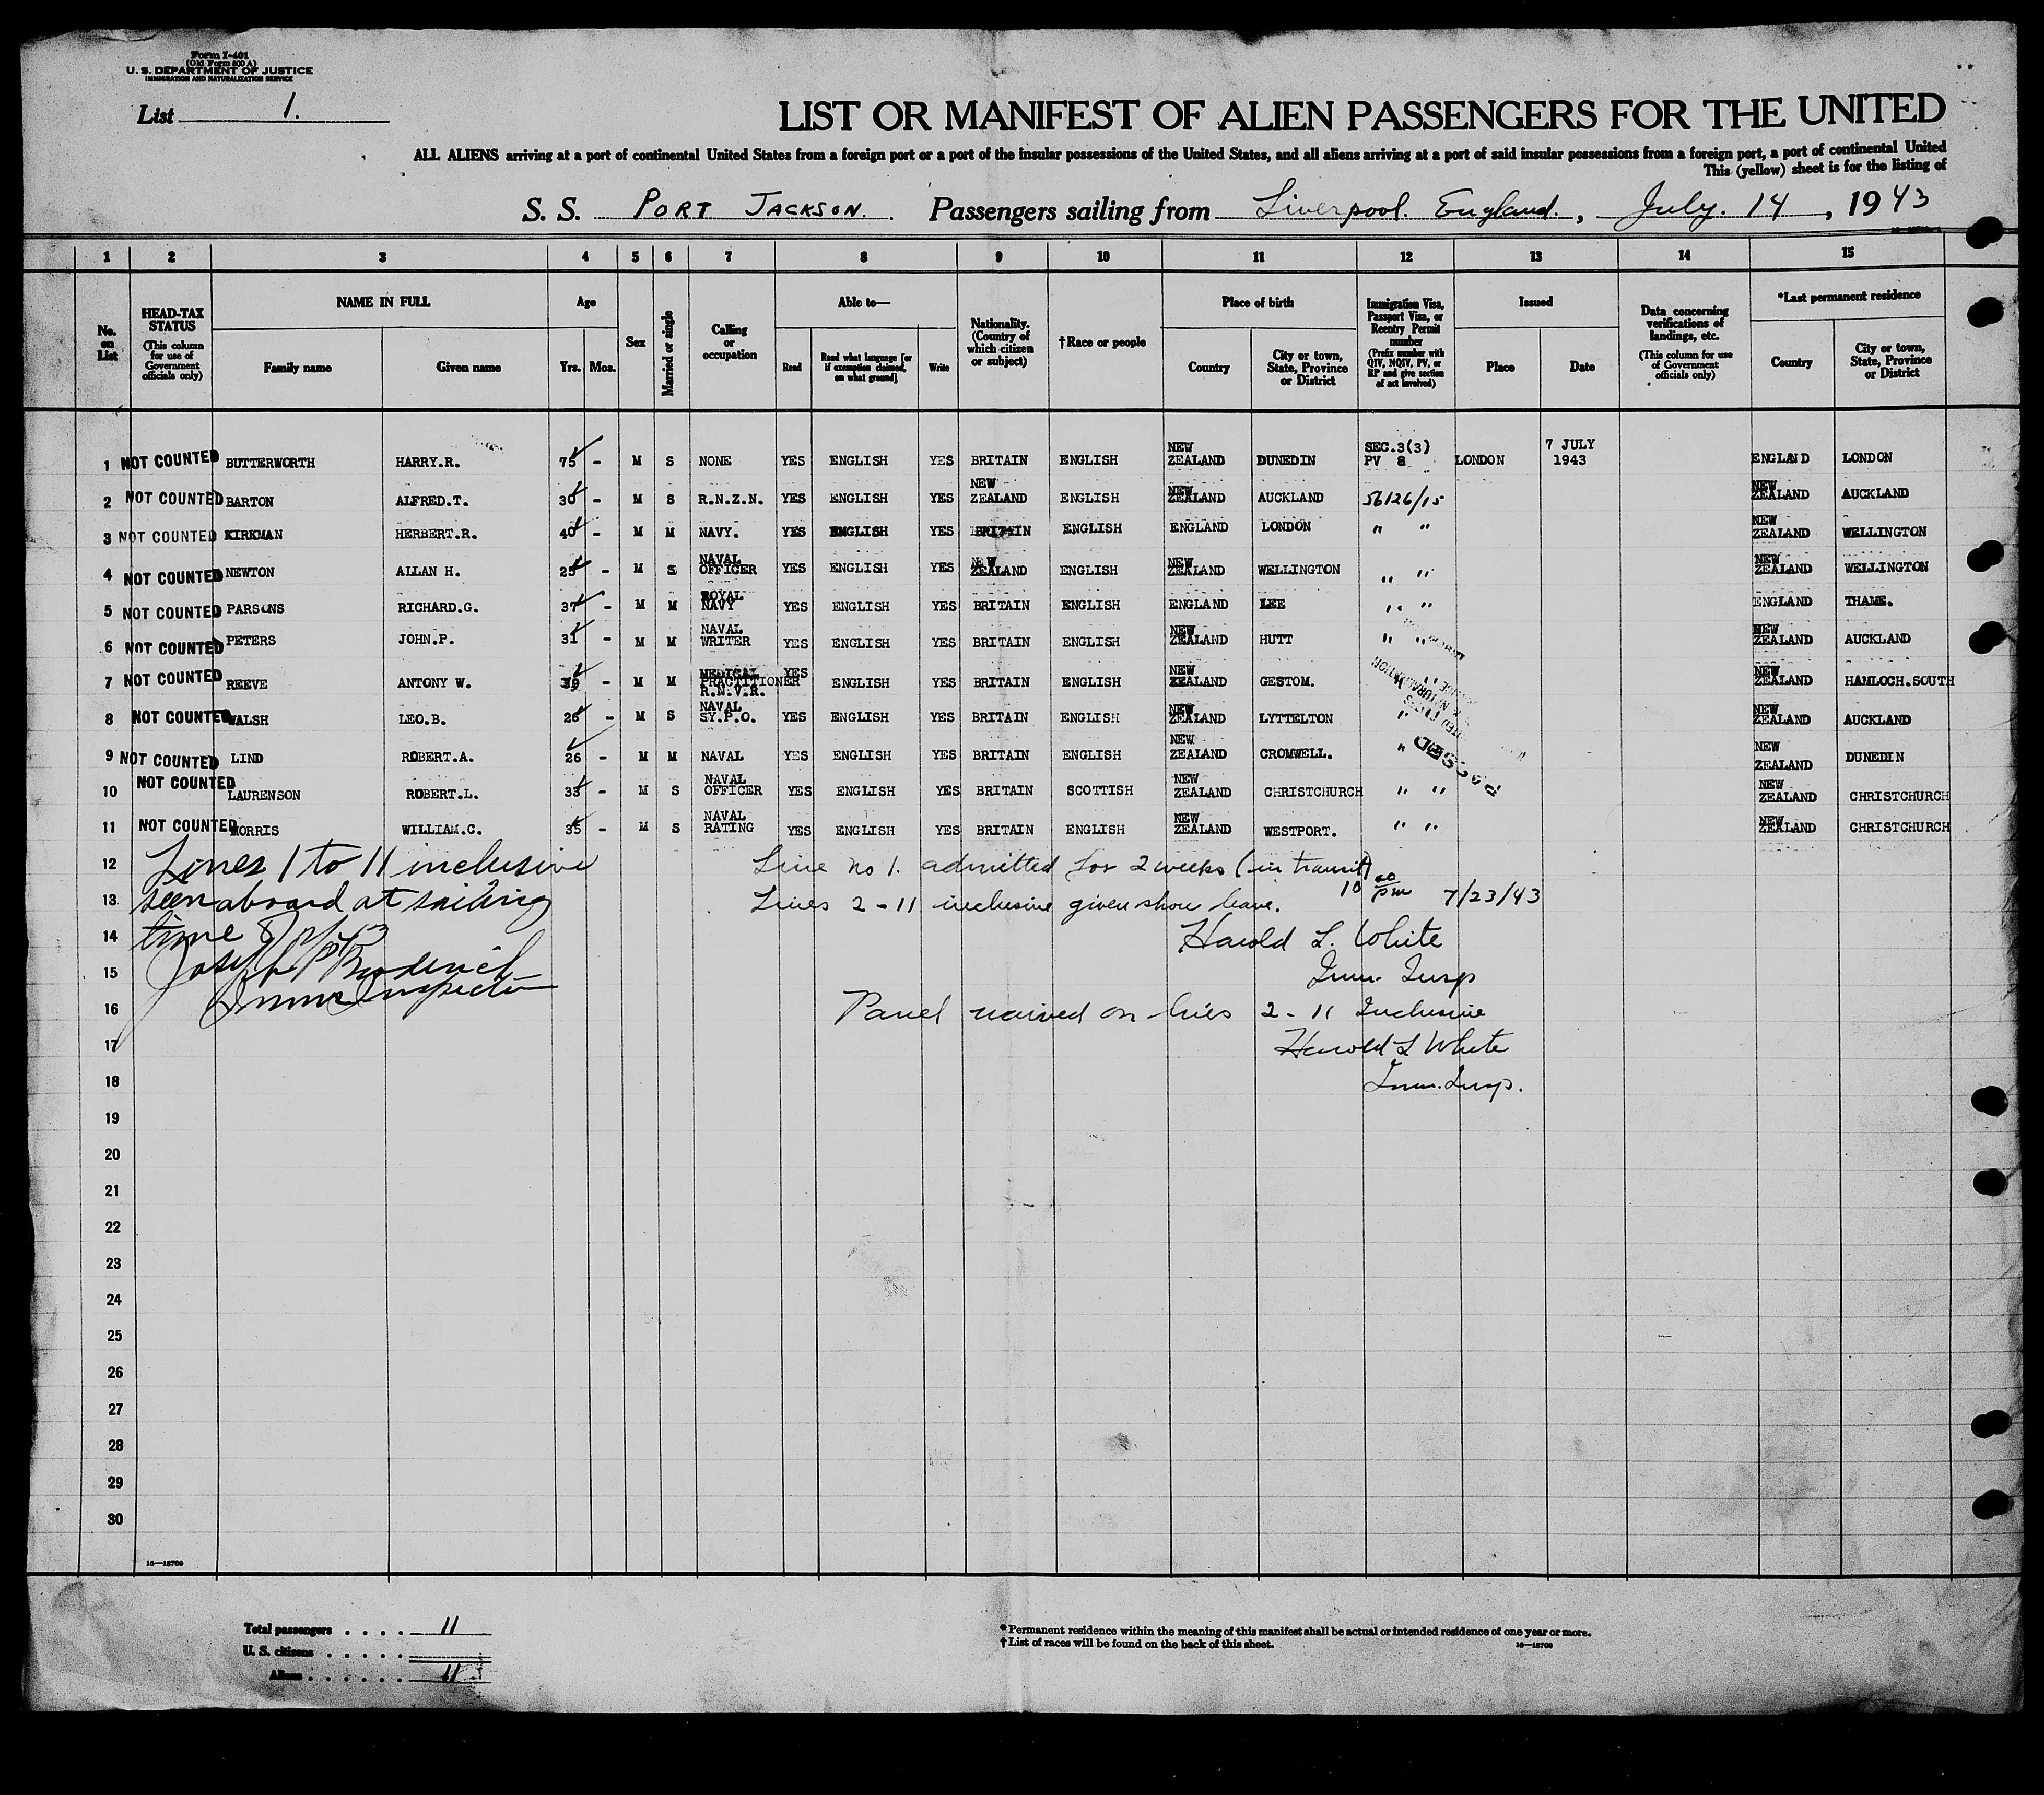 Form I-401
(Old Form 500 A)
U. S. DEPARTMENT OF JUSTICE
IMMIGRATION AND NATURALIZATION SERVICE
List 1.
LIST OR MANIFEST OF ALIEN PASSENGERS FOR THE UNITED
ALL ALIENS arriving at a port of continental United States from a foreign port or a port of the insular possessions of the United States, and all aliens arriving at a port of said insular possessions from a foreign port, a port of continental United
This (yellow) sheet is for the listing of
S. S. PORT JACKSON. Passengers sailing from Liverpool. England. , July. 14 , 1943
1 2 3 4 5 6 7 8 9 10 11 12 13 14 15
No. on List
HEAD-TAX STATUS (This column for use of Government officials only)
NAME IN FULL Family name Given name
Age Yrs. Mos.
Sex
Married or single
Calling or occupation
Able to— Read Read what language [or if exemption claimed, on what ground] Write
Nationality. (Country of which citizen or subject)
†Race or people
Place of birth Country City or town, State, Province or District
Immigration Visa, Passport Visa, or Reentry Permit number (Prefix number with QIV, NQIV, PV, or RP and give section of act involved)
Issued Place Date
Data concerning verifications of landings, etc. (This column for use of Government officials only)
*Last permanent residence Country City or town, State, Province or District
1 NOT COUNTED BUTTERWORTH HARRY.R. 75 - M S NONE YES ENGLISH YES BRITAIN ENGLISH NEW ZEALAND DUNEDIN SEC.3(3) PV 8 LONDON 7 JULY 1943 ENGLAND LONDON
2 NOT COUNTED BARTON ALFRED.T. 30 - M S R.N.Z.N. YES ENGLISH YES NEW ZEALAND ENGLISH NEW ZEALAND AUCKLAND 56126/15 NEW ZEALAND AUCKLAND
3 NOT COUNTED KIRKMAN HERBERT.R. 40 - M M NAVY. YES ENGLISH YES BRITAIN ENGLISH ENGLAND LONDON " " NEW ZEALAND WELLINGTON
4 NOT COUNTED NEWTON ALLAN H. 25 - M S NAVAL OFFICER YES ENGLISH YES NEW ZEALAND ENGLISH NEW ZEALAND WELLINGTON " " NEW ZEALAND WELLINGTON
5 NOT COUNTED PARSONS RICHARD.G. 37 - M M ROYAL NAVY YES ENGLISH YES BRITAIN ENGLISH ENGLAND LEE " " ENGLAND THAME.
6 NOT COUNTED PETERS JOHN.P. 31 - M M NAVAL WRITER YES ENGLISH YES BRITAIN ENGLISH NEW ZEALAND HUTT " " NEW ZEALAND AUCKLAND
7 NOT COUNTED REEVE ANTONY W. 39 - M M MEDICAL PRACTITIONER R.N.V.R. YES ENGLISH YES BRITAIN ENGLISH NEW ZEALAND GESTOM. " " NEW ZEALAND HAMLOCH.SOUTH
8 NOT COUNTED WALSH LEO.B. 26 - M S NAVAL SY.P.O. YES ENGLISH YES BRITAIN ENGLISH NEW ZEALAND LYTTELTON " NEW ZEALAND AUCKLAND
9 NOT COUNTED LIND ROBERT.A. 26 - M M NAVAL YES ENGLISH YES BRITAIN ENGLISH NEW ZEALAND CROMWELL. " NEW ZEALAND DUNEDIN
10 NOT COUNTED LAURENSON ROBERT.L. 33 - M S NAVAL OFFICER YES ENGLISH YES BRITAIN SCOTTISH NEW ZEALAND CHRISTCHURCH " " NEW ZEALAND CHRISTCHURCH
11 NOT COUNTED MORRIS WILLIAM.C. 35 - M S NAVAL RATING YES ENGLISH YES BRITAIN ENGLISH NEW ZEALAND WESTPORT. " " NEW ZEALAND CHRISTCHURCH
PASSED
12 Lines 1 to 11 inclusive Line no 1. admitted for 2 weeks (in transit)
13 seen aboard at sailing Lines 2 - 11 inclusive given shore leave. 10 00 pm 7/23/43
14 time Harold L. White
15 Joseph P Broderick Imm. Insp
16 Immr Inspector Panel waived on lines 2 - 11 Inclusive
17 Harold L White
18 Imm. Insp.
19
20
21
22
23
24
25
26
27
28
29
30
16—18709
Total passengers . . . . 11
U. S. citizens . . . . .
Aliens . . . . . . 11
* Permanent residence within the meaning of this manifest shall be actual or intended residence of one year or more.
† List of races will be found on the back of this sheet. 16—18709